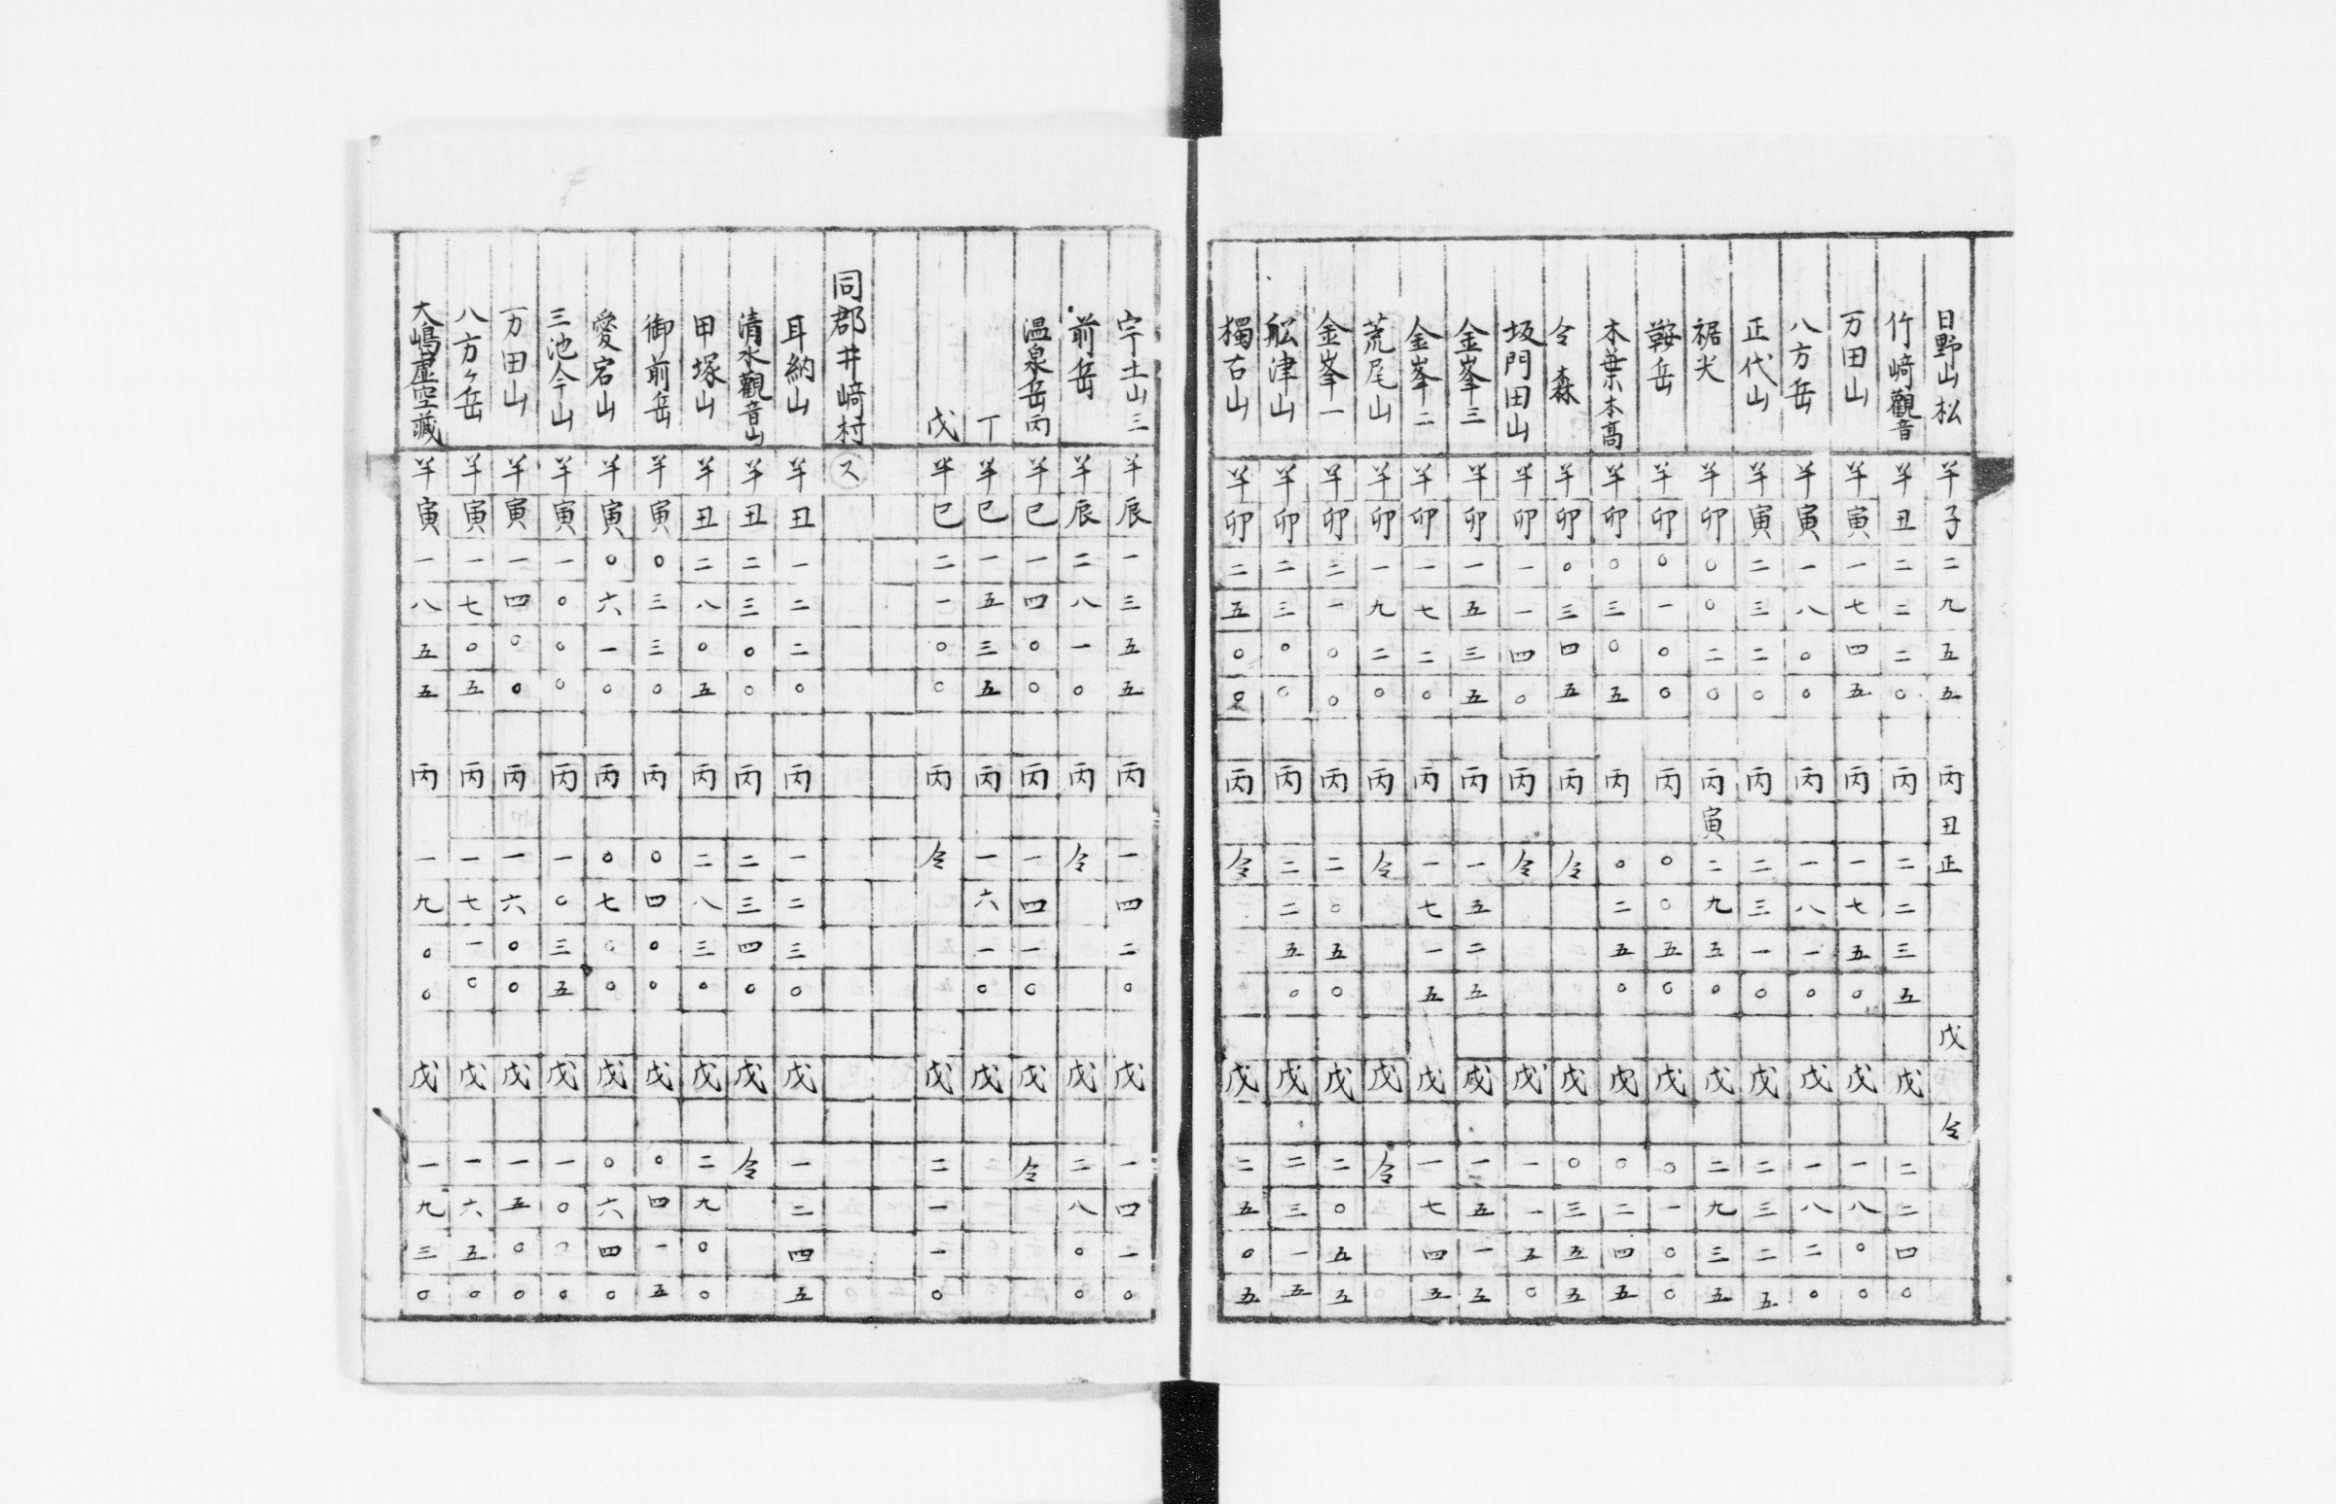 日野山松 半子二九五五 丙丑正 戊令
竹﨑觀音 半丑二二二〇 丙二二三五 戊二二四〇
万田山 半寅一七四五 丙一七五〇 戊一八〇〇
八方岳 半寅一八〇〇 丙一八一〇 戊一八二〇
正代山 半寅二三二〇 丙二三一〇 戊二三二五
裾尖 半卯〇〇二〇 丙寅二九五〇 戊二九三五
鞍岳 半卯〇一〇〇 丙〇〇五〇 戊〇一〇〇
木葉木高 半卯〇三〇五 丙〇二五〇 戊〇二四五
令森 半卯〇三四五 丙令 戊〇三五五
坂門田山 半卯一一四〇 丙令 戊一一五〇
金峯三 半卯一五三五 丙一五二五 戊一五一五
金峯二 半卯一七二〇 丙一七一五 戊一七四五
荒尾山 半卯一九二〇 丙令 戊令
金峯一 半卯二一〇〇 丙二〇五〇 戊二〇五五
舩津山 半卯二三〇〇 丙二二五〇 戊二三一五
獨古山 半卯二五〇 丙令 戊二五〇五
宇土山三 半辰一三五五 丙一四二〇 戊一四一〇
前岳 半辰二八一〇 丙令 戊二八〇〇
温泉岳丙 半巳一四〇〇 丙一四一〇 戊令
丁 半巳一五三五 丙一六一〇 戊
戊 半巳二一〇〇 丙令 戊二一一〇
同郡井﨑村 ス
耳納山 半丑一二二〇 丙一二三〇 戊一二四五
清水觀音山 半丑二三〇〇 丙二三四〇 戊令
甲塚山 半丑二八〇五 丙二八三〇 戊二九〇〇
御前岳 半寅〇三三〇 丙〇四〇〇 戊〇四一五
愛宕山 半寅〇六一〇 丙〇七〇〇 戊〇六四〇
三池今山 半寅一〇〇〇 丙一〇三五 戊一〇〇〇
万田山 半寅一四〇〇 丙一六〇〇 戊一五〇〇
八方ヶ岳 半寅一七〇五 丙一七一〇 戊一六五〇
大嶋虚空蔵 半寅一八五五 丙一九〇〇 戊一九三〇